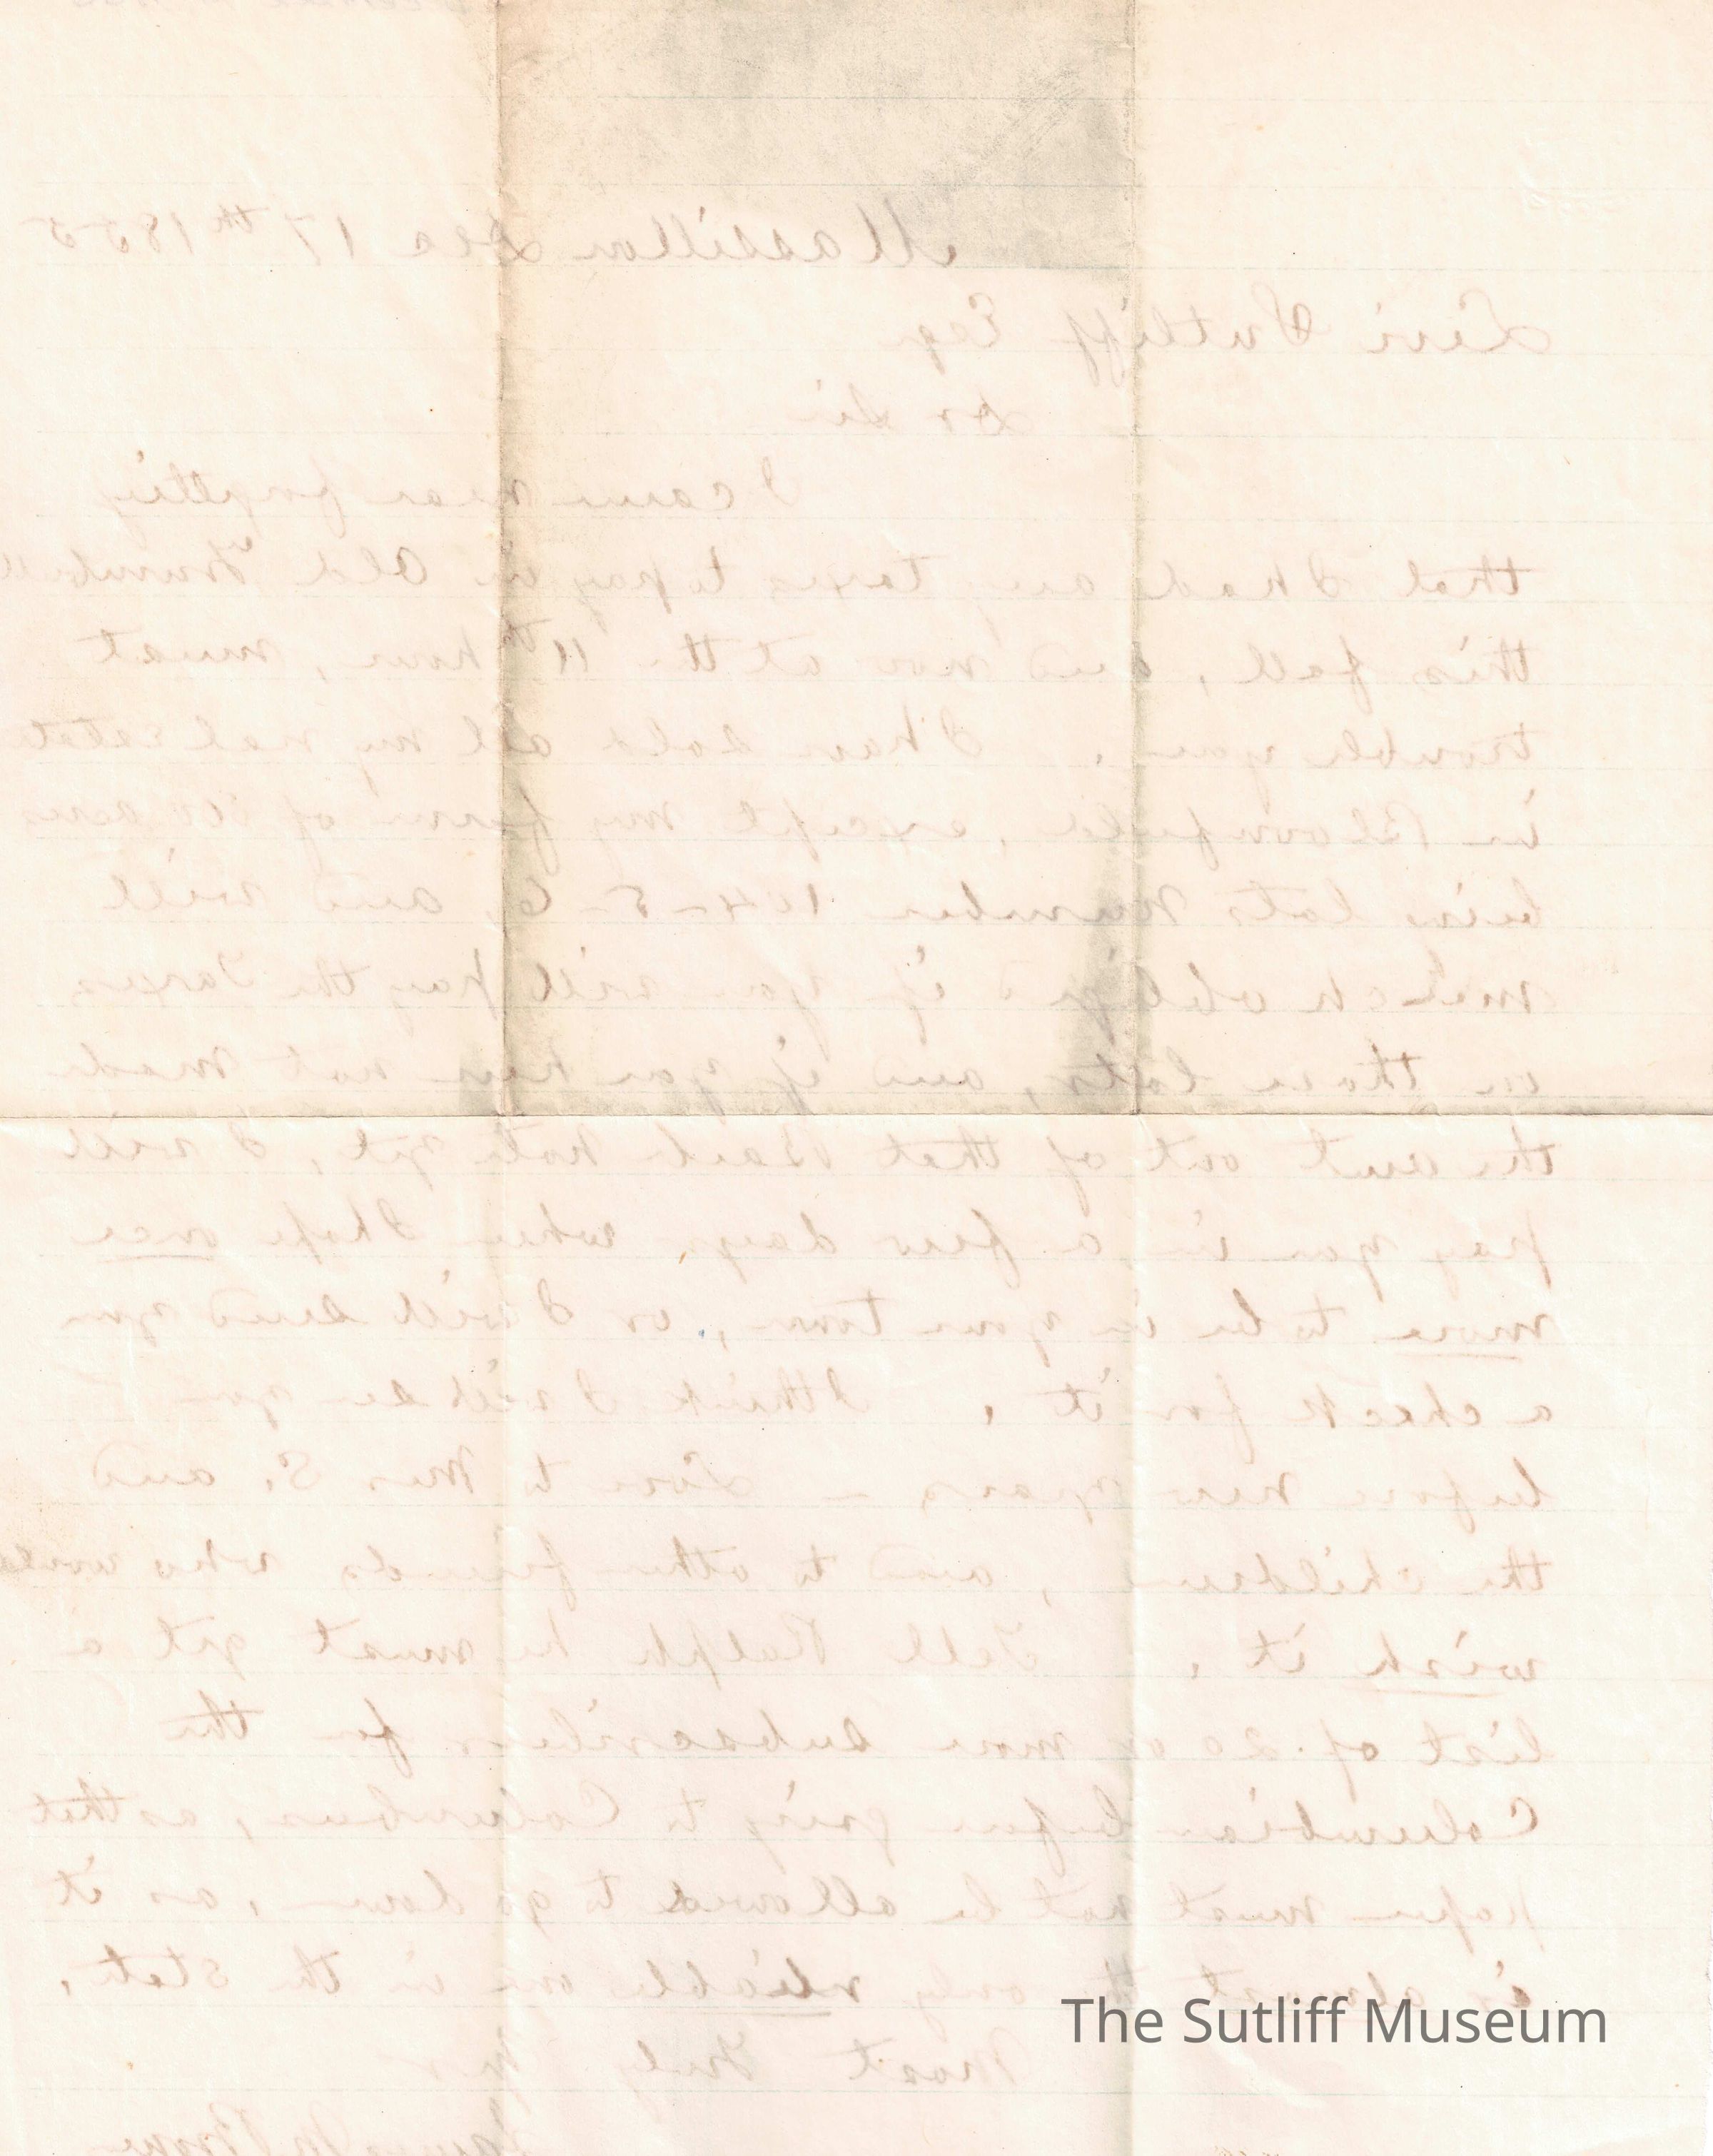 Massillon Dec 17th 1855
Levi Sutliff Esq
Dr Sir
I came near forgetting
that I had any taxes to pay in Old Trumbull
this fall, and now at the 11th hour, must
trouble you. I have sold all my real estate
in Bloomfield, except my farm of acres
being lots number 104-5-6, and will
much oblige if you will pay the Taxes
on those lots, and if you have not made
the amt out of that note yet, I will
pay you in a few days, when I hope once
more to be in your town, or I will send you
a check for it. I think I will see you
before new years - Love to Mrs S. and
the children, and to other friends who would
wish it. Tell Ralph he must get a
list of 20 or more subscribers for the
Columbian before going to Columbus, as that
paper must not be allowed to go down, as it
is almost the only reliable one in the State.
Most Truly Yrs
The Sutliff Museum